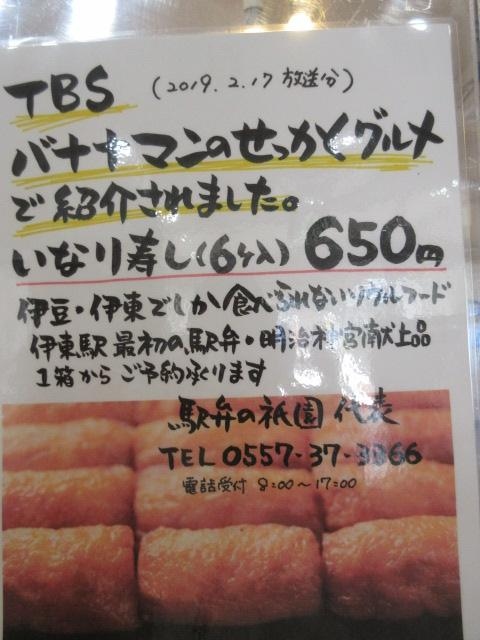 TBS (2019.2.17 放送分)
バナナマンのせっかくグルメ
で紹介されました。
いなり寿し(6ケ入) 650円
伊豆・伊東でしか食べられないソウルフード
伊東駅最初の駅弁・明治神宮献上品
1箱からご予約承ります
駅弁の祇園 代表
TEL 0557-37-3366
電話受付 8:00~17:00